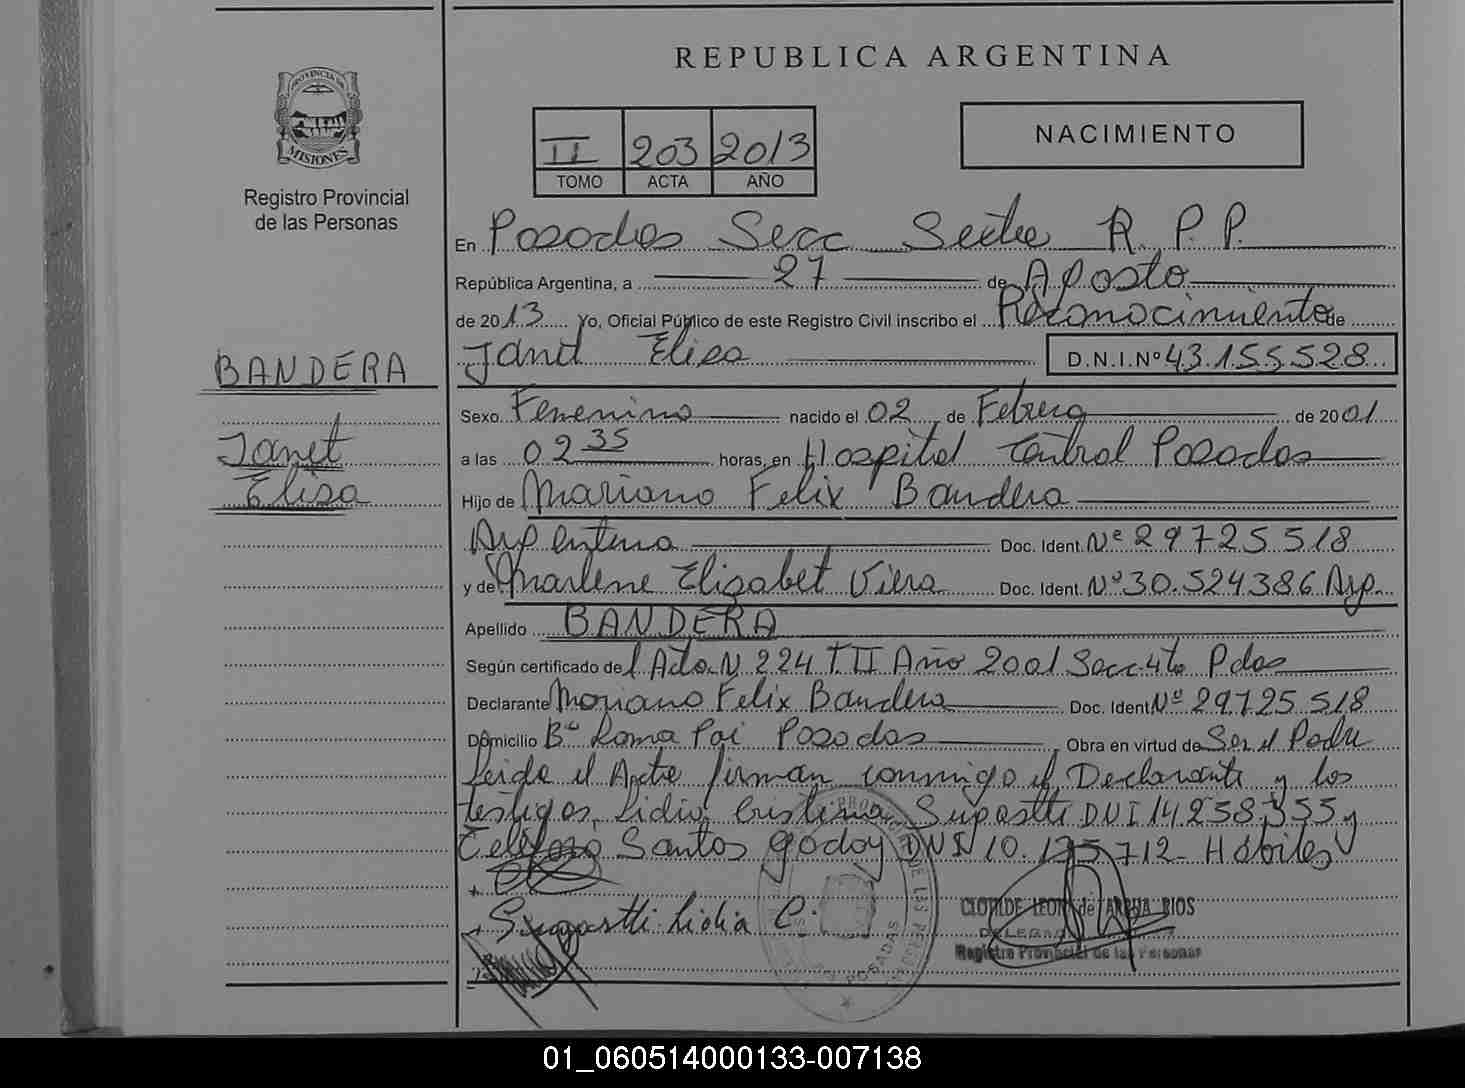 REPUBLICA ARGENTINA
PROVINCIA DE
MISIONES
Registro Provincial
de las Personas
II 203 2013
TOMO ACTA AÑO
NACIMIENTO
En Posadas Secc Sexta R. P. P.
República Argentina, a 27 de Agosto
de 2013 Yo, Oficial Público de este Registro Civil inscribo el Reconocimiento de
Janet Elisa D.N.I.Nº 43.155.528
BANDERA
Janet
Elisa
Sexo Femenino nacido el 02 de Febrero de 2001
a las 02 35 horas, en Hospital Central Posadas
Hijo de Mariano Felix Bandera
Argentina Doc. Ident. Nº 29725518
y de Marlene Elizabet Viera Doc. Ident. Nº 30.524.386 Arg.
Apellido BANDERA
Según certificado del Acta N 224 T II Año 2001 Secc 4ta Pdas
Declarante Mariano Felix Bandera Doc. Ident Nº 29725518
Domicilio Bº Loma Poi Posadas Obra en virtud de Ser el Padre
Leida el Acta firman conmigo el Declarante y los
testigos, Lidia Cristina Sugastti DNI 14258355 y
Telésforo Santos Godoy DNI 10.195712- Hábiles
Sugastti Lidia C.
CLOTILDE LEON de ARRUA RIOS
DELEGADA
Registro Provincial de las Personas
POSADAS
01_060514000133-007138